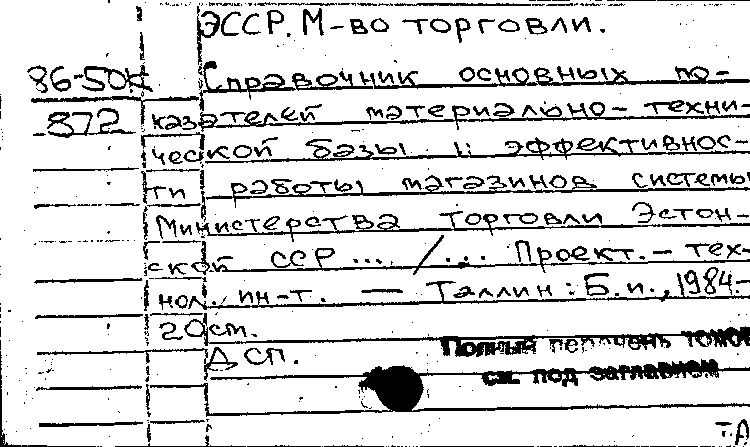 ЭССР. М-во торговли.
86-50к Справочник основных по-
872 казателей материально-техни-
ческой базы и эффективнос-
ти работы магазинов системы
Министерства торговли Эстон-
ской ССР ... / ... Проект.-тех-
нол. ин-т. — Таллин: Б.и., 1984.-
20см.
ДСП.
Полный перечень томов
см. под заглавием
Т.А